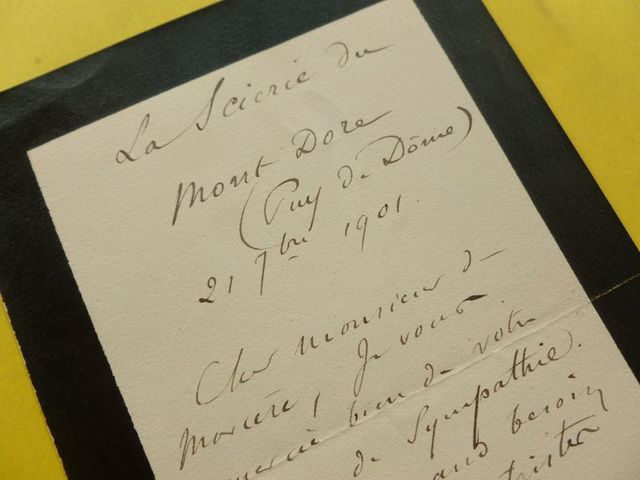 La Scierie du
Mont Dore
(Puy de Dôme)
21 7bre 1901.
Cher monsieur de
Morcère, Je vous
remercie bien de votre
de Sympathie.
besoin